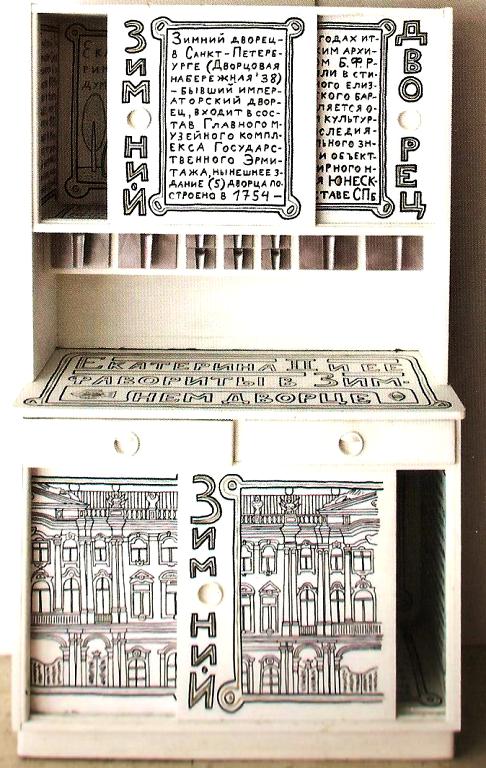 ЗИМНИЙ
Зимний дворец-
в Санкт-Петерб-
урге (Дворцовая
набережная '38)
- бывший импер-
аторский двор-
ец, входит в сос-
тав Главного м-
узейного компл-
екса Государс-
твенного Эрми-
тажа, нынешнее з-
дание (5) дворца по-
строено в 1754 -
годах ит-
ким архи-
м Б.Ф Р-
ли в сти-
ного елиз-
кого бар-
ляется о-
культур-
следия -
льного зн-
и объект-
ирного н-
я ЮНЕСК-
таве СПб
ДВОРЕЦ
Екатерина II и ее
фавориты в Зим-
нем дворце
Зимний